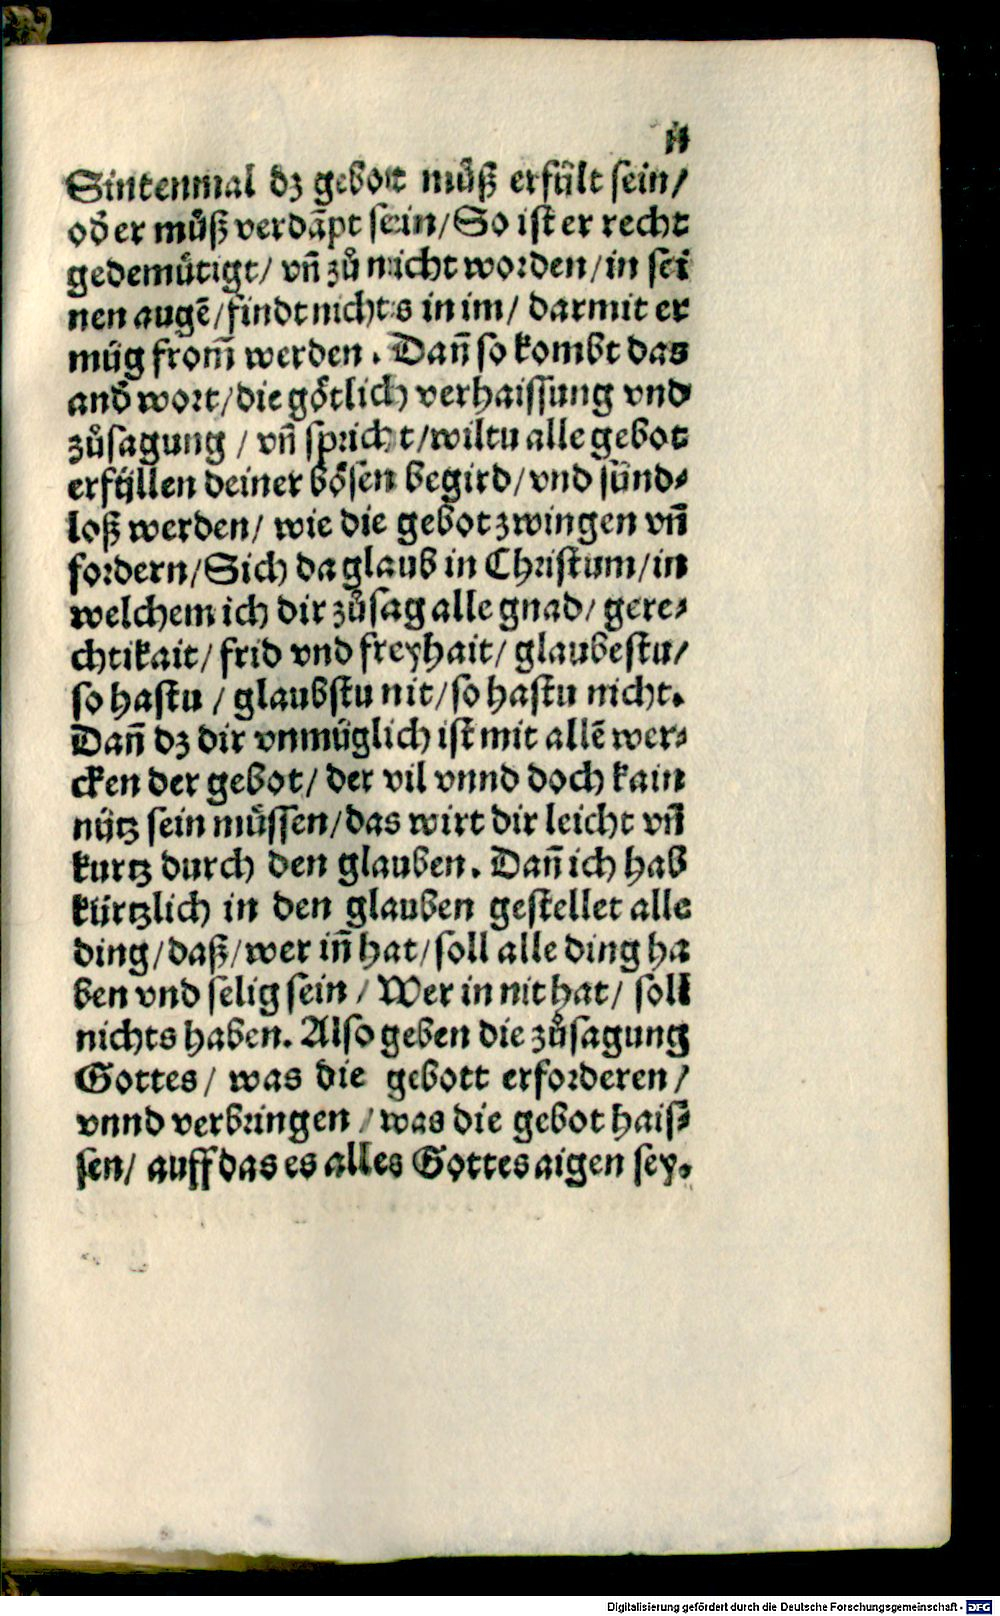 11
Sintenmal dz gebott můß erfült sein/
oď er můß verdãpt sein/So ist er recht
gedemütigt/ vñ zů nicht worden/in sei
nen augẽ/findt nichts in im/ darmit er
müg from̃ werden. Dañ so kombt das
anď wort/die götlich verhaissung vnd
zůsagung / vñ spricht/wiltu alle gebot
erfyllen deiner bösen begird/vnd sünd⸗
loß werden/ wie die gebot zwingen vñ
fordern/Sich da glaub in Christum/in
welchem ich dir zůsag alle gnad/ gere⸗
chtikait/ frid vnd freyhait/ glaubestu/
so hastu / glaubstu nit/so hastu nicht.
Dañ dz dir vnmüglich ist mit allẽ wer⸗
cken der gebot/ der vil vnnd doch kain
nütz sein müssen/das wirt dir leicht vñ
kurtz durch den glauben. Dañ ich hab
kürtzlich in den glauben gestellet alle
ding/daß/wer iñ hat/soll alle ding ha
ben vnd selig sein / Wer in nit hat/ soll
nichts haben. Also geben die zůsagung
Gottes/ was die gebott erforderen/
vnnd verbringen / was die gebot hais⸗
sen/ auff das es alles Gottes aigen sey.
Digitalisierung gefördert durch die Deutsche Forschungsgemeinschaft - DFG